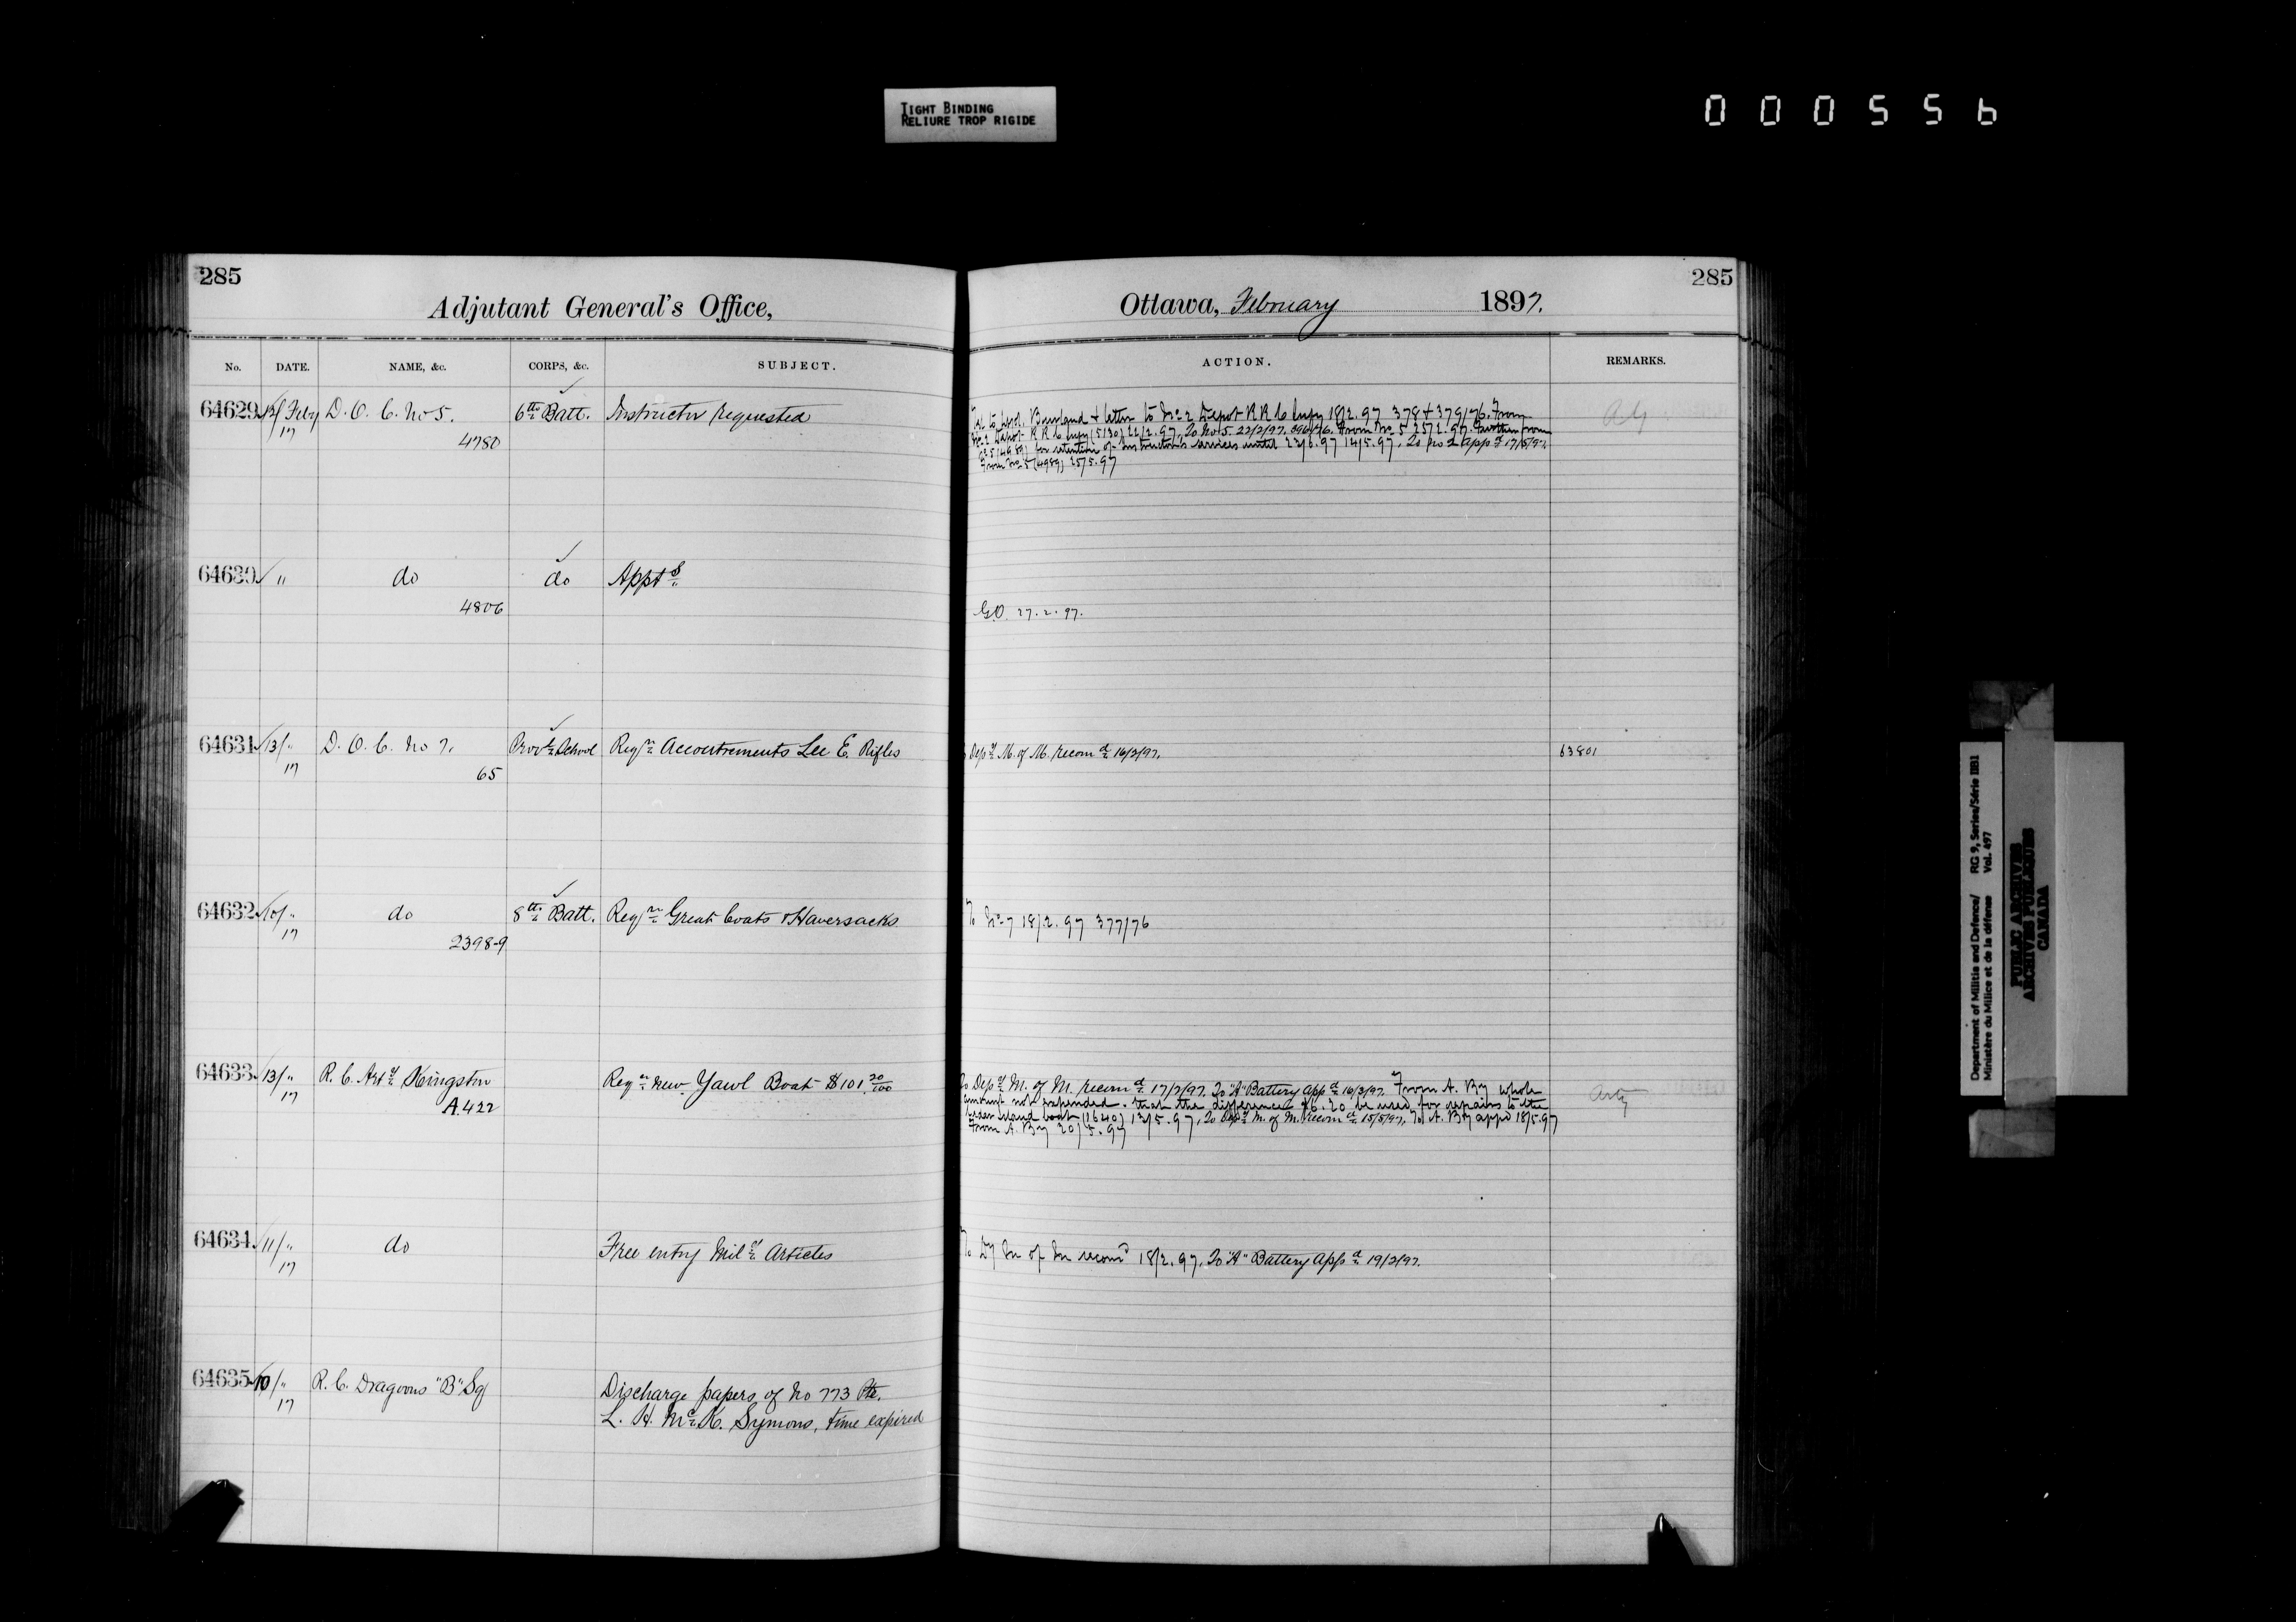 TIGHT BINDING
RELIURE TROP RIGIDE
000556
285
Adjutant General's Office,
No. DATE. NAME, &c. CORPS, &c. SUBJECT.
64629 13/Feby D. O. C. No 5. 6th Batt. Instructor requested
17
4780
64630 " do do Appts
4806
64631 13/" D. O. C. No 7. Provl School Reqn Accoutrements Lee E. Rifles
17
65
64632 10/" do 8th Batt. Reqn Great Coats & Haversacks
17
2398-9
64633 13/" R. C. Arty Kingston Reqn new Yawl Boat $101 20/100
17
A.422
64634 11/" do Free entry Mily Articles
17
64635 10/" R. C. Dragoons "B" Sq Discharge papers of No 773 Pte.
17
L. H. Mc K. Symons, time expired
285
Ottawa, February 1897.
ACTION. REMARKS.
Tel to Burland & letter to No 2 Depot R R C Infy 18/2.97 378 & 379/76. From
No 2 Depot R R C Infy (5130) 22/2.97. To No 5. 22/2/97. 396/76. From No 5 25/2.97. Further from
No 5 (4989) for retention of Instructors services until 22/6.97 14/5.97. To No 2 appd 17/5/97.
From No 5 (4989) 25/5.97
G.O. 27.2.97.
Depy M. of M. recomd 16/2/97. 63801
To No 7 18/2.97 377/76
To Depy M. of M. recomd 17/2/97. To "A" Battery Appd 16/3/97. From A. By whole
amount not expended. that the difference $6.20 be used for repairs to the
Cedar Island boat (1640) 13/5.97. To Depy M. of M. recomd 15/5/97. To A. By appd 18/5.97
From A. By 20/5.97
Arty
To Dy M of M recomd 18/2.97. To "A" Battery Appd 19/2/97.
Department of Militia and Defence/
Ministère du Milice et de la défense
RG 9, Series/Série IIB1
Vol. 497
PUBLIC ARCHIVES
ARCHIVES PUBLIQUES
CANADA